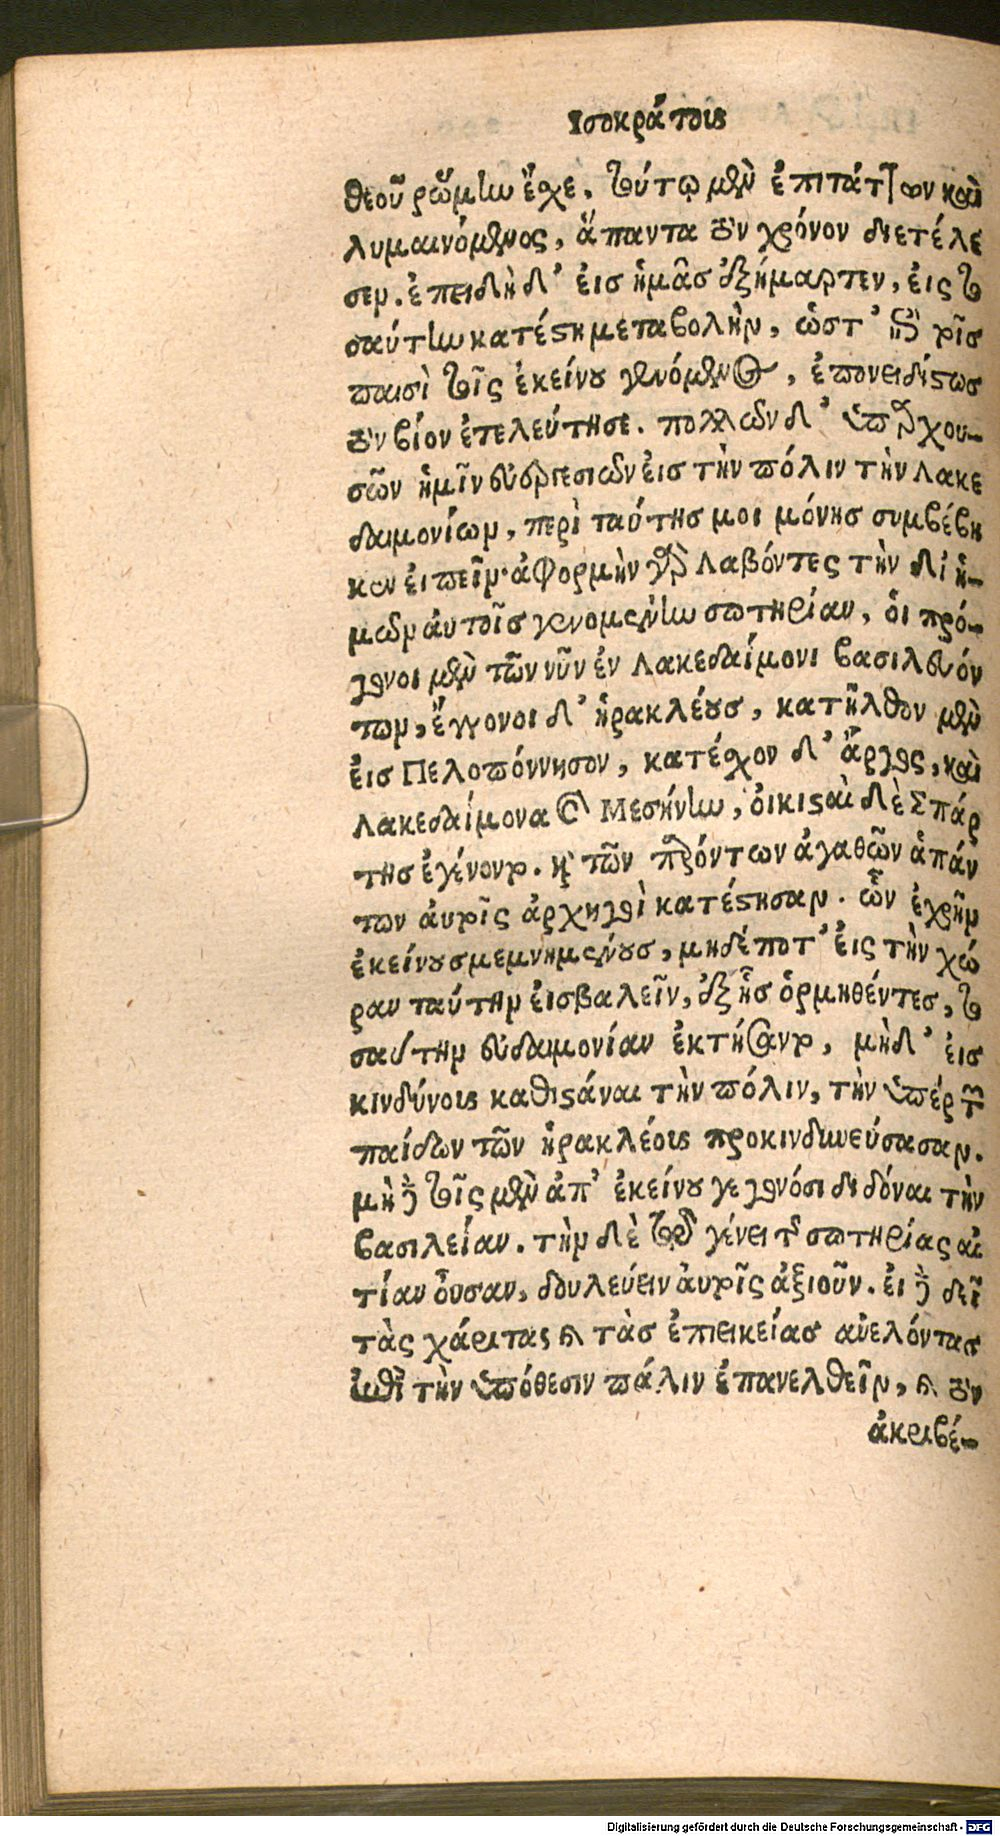 Ισοκράτους
θεοῦ ῥώμην ἔχε. τούτῳ μὲν ἐπιτάττων καὶ
λυμαινόμενος, ἅπαντα τὸν χρόνον διετέλε
σεν. ἐπειδὴ δ' εἰς ἡμᾶς ἐξήμαρτεν, εἰς το
σαύτην κατέστη μεταβολὴν, ὥστ' ἐπὶ τοῖς
παισὶ τοῖς ἐκείνου γενόμενος, ἐπονειδίστως
τὸν βίον ἐτελεύτησε. πολλῶν δ' ὑπαρχου-
σῶν ἡμῖν εὐεργεσιῶν εἰς τὴν πόλιν τὴν Λακε
δαιμονίων, περὶ ταύτης μοι μόνης συμβέβη
κεν εἰπεῖν· ἀφορμὴν γὰρ λαβόντες τὴν δι' ἡ-
μῶν αὐτοῖς γενομένην σωτηρίαν, οἱ πρό-
γονοι μὲν τῶν νῦν ἐν Λακεδαίμονι βασιλευόν
των, ἔγγονοι δ' ἡρακλέους, κατῆλθον μὲν
εἰς Πελοπόννησον, κατέχον δ' ἄργος, καὶ
Λακεδαίμονα καὶ Μεσήνην, οἰκισταὶ δὲ Σπάρ
της ἐγένοντο. καὶ τῶν παρόντων ἀγαθῶν ἁπάν
των αὐτοῖς ἀρχηγοὶ κατέστησαν. ὧν ἐχρῆν
ἐκείνους μεμνημένους, μηδέποτ' εἰς τὴν χώ
ραν ταύτην εἰσβαλεῖν, ἐξ ἧς ὁρμηθέντες, το
σαύτην εὐδαιμονίαν ἐκτήσαντο, μηδ' εἰς
κινδύνους καθιστάναι τὴν πόλιν, τὴν ὑπὲρ τῶν
παίδων τῶν ἡρακλέους προκινδυνεύσασαν.
μὴ δὲ τοῖς μὲν ἀπ' ἐκείνου γεγονόσι διδόναι τὴν
βασιλείαν. τὴν δὲ τῷ γένει τῆς σωτηρίας αἰ
τίαν οὖσαν, δουλεύειν αὐτοῖς ἀξιοῦν. εἰ δὲ δεῖ
τὰς χάριτας καὶ τὰς ἐπιεικείας ἀνελόντας
ἐπὶ τὴν ὑπόθεσιν πάλιν ἐπανελθεῖν, καὶ τὸν
ἀκριβέ-
Digitalisierung gefördert durch die Deutsche Forschungsgemeinschaft - DFG